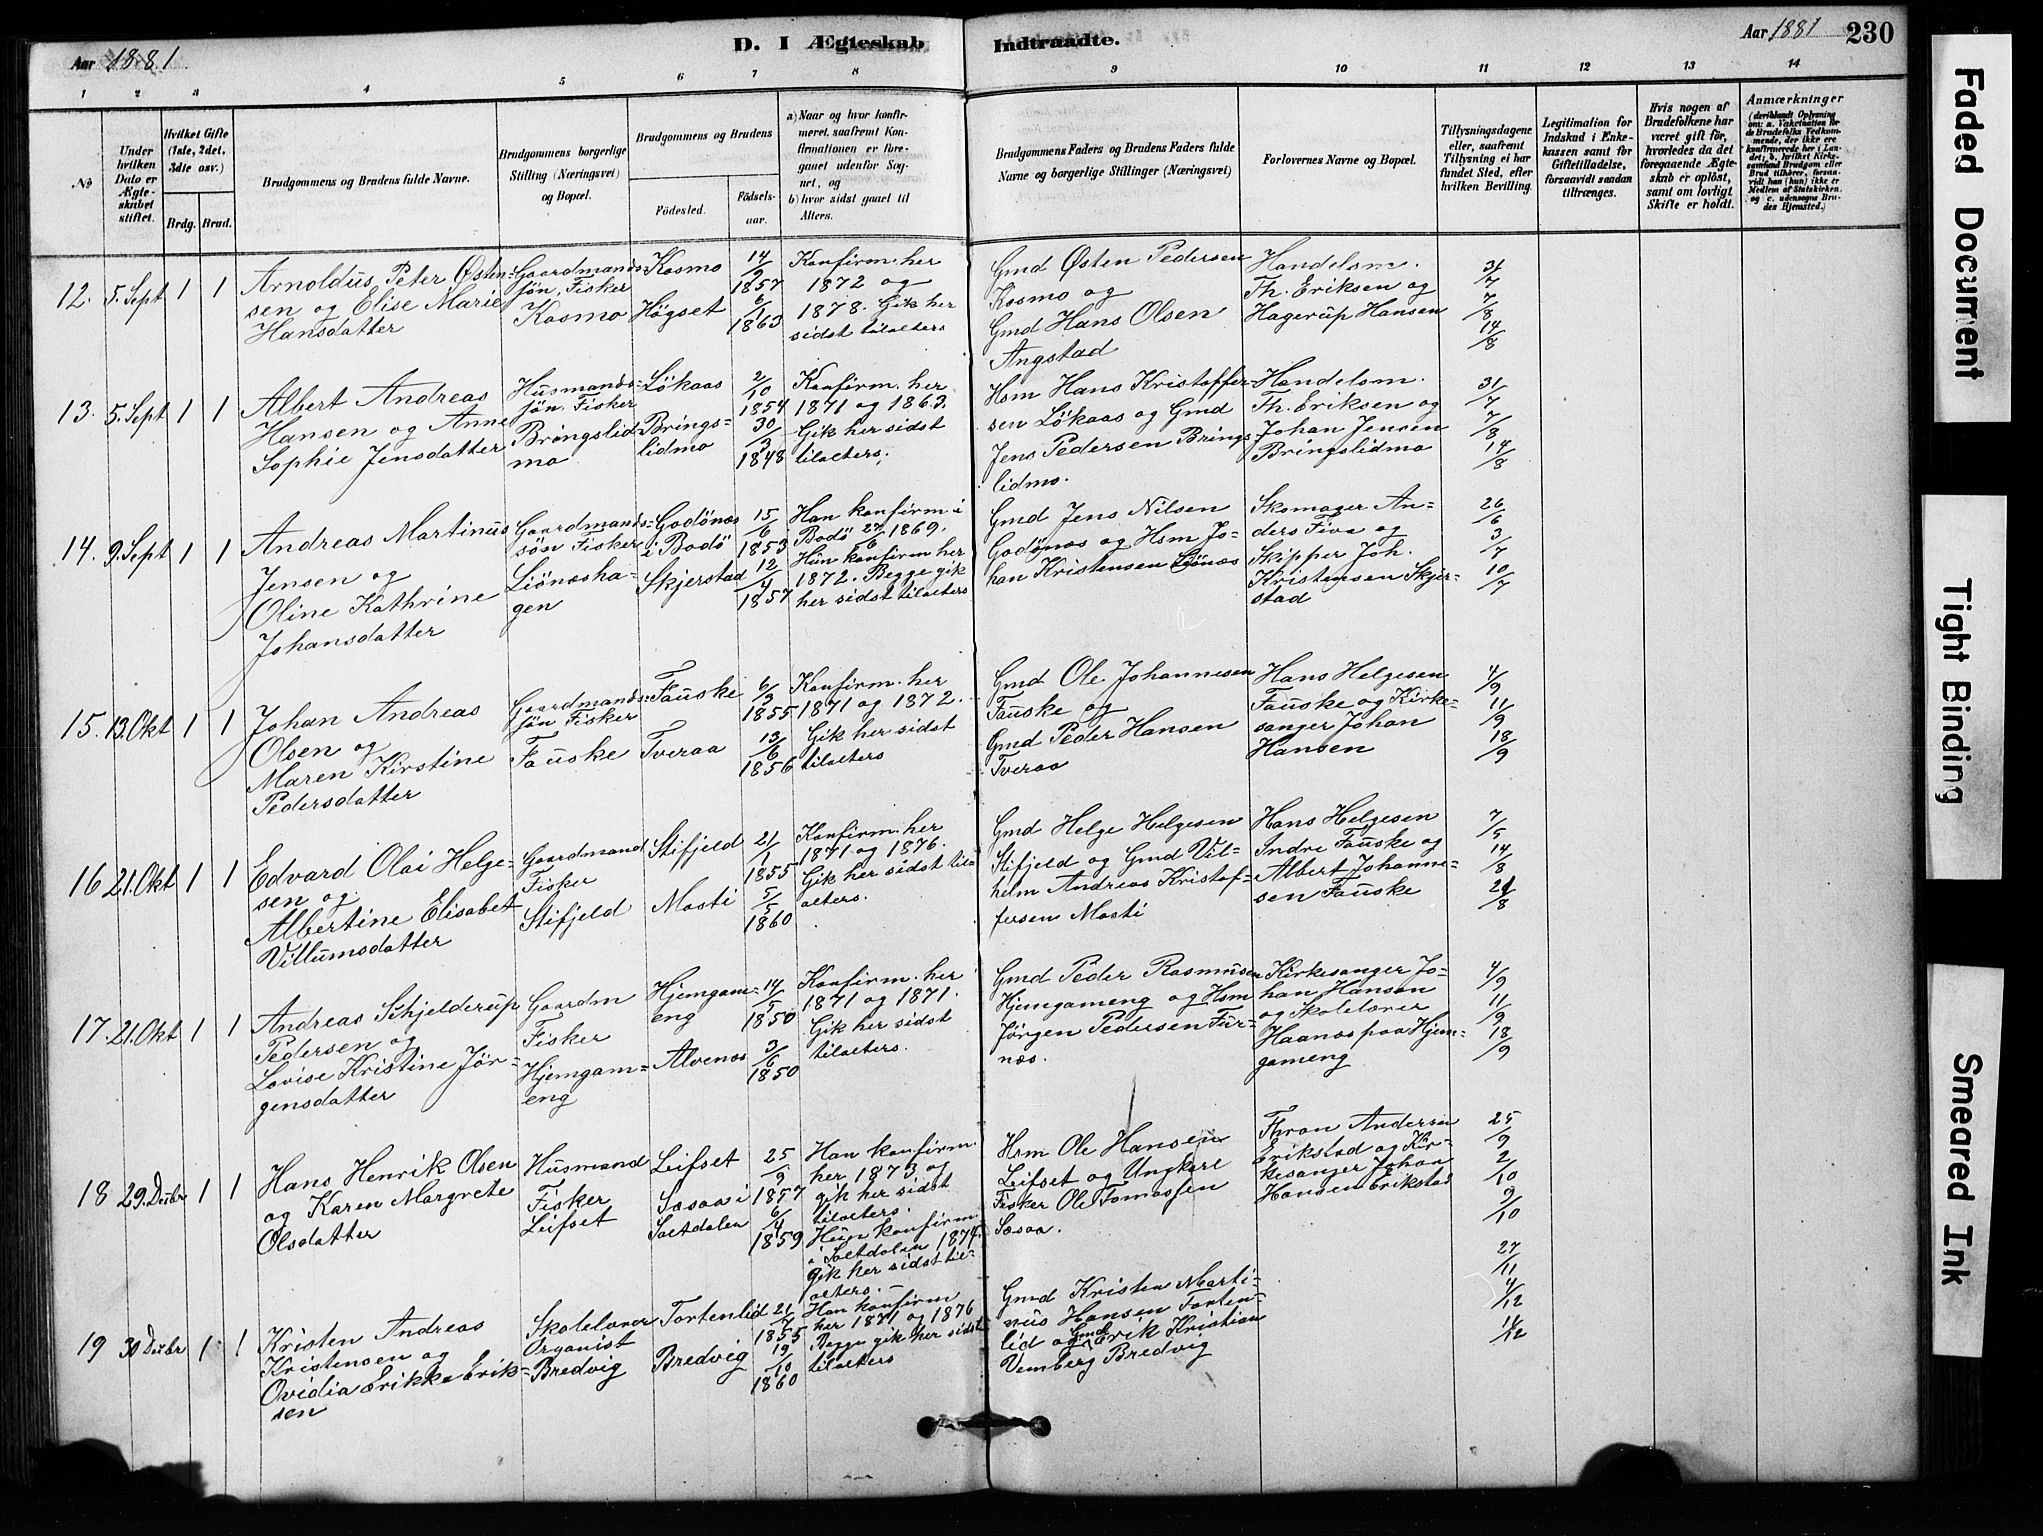 Aar 1881.
D. I Ægteskab Indtraadte.
Aar 1881
230
1 2 3 4 5 6 7 8 9 10 11 12 13 14
No
Under hvilken Dato er Ægteskabet stiftet.
Hvilket Gifte (1ste, 2det, 3die osv.)
Brdg. Brud.
Brudgommens og Brudens fulde Navne.
Brudgommens borgerlige Stilling (Næringsvei) og Bopæl.
Brudgommens og Brudens
Födested.
Födselsaar.
a) Naar og hvor konfirmeret, saafremt Konfirmationen er foregaaet udenfor Sognet, og
b) hvor sidst gaaet til Alters.
Brudgommens Faders og Brudens Faders fulde Navne og borgerlige Stillinger (Næringsvei)
Forlovernes Navne og Bopæl.
Tillysningsdagene eller, saafremt Tillysning ei har fundet Sted, efter hvilken Bevilling.
Legitimation for Indskud i Enkekassen samt for Giftetilladelse, forsaavidt saadan tiltrænges.
Hvis nogen af Brudefolkene har været gift før, hvorledes da det foregaaende Ægteskab er oplöst, samt om lovligt Skifte er holdt.
Anmærkninger
12. 5. Sept 1 1
Arnoldus Peter Østen-
sen og Elise Marie
Hansdatter
Gaardmands-
søn, Fisker
Kosmo
Kosmo
Högset
14/9
1857
6/1
1863
Konfirm. her
1872 og
1878. Gik her
sidst tilalters
Gmd Østen Pedersen
Kosmo og
Gmd Hans Olsen
Angstad
Handelsm.
Th. Eriksen og
Hagerup Hansen
31/7
7/8
14/8
13. 5. Sept 1 1
Albert Andreas
Hansen og Anne
Sophie Jensdatter
Husmands-
søn, Fisker
Bringslid
mo
Lökaas
Brings-
lidmo
2/10
1854
30/3
1848
Konfirm. her
1871 og 1863.
Gik her sidst
tilalters.
Hsm Hans Kristoffer-
sen Lökaas og Gmd
Jens Pedersen Brings-
lidmo.
Handelsm.
Th. Eriksen og
Johan Jensen
Bringslidmo
31/7
7/8
14/8
14. 9. Sept 1 1
Andreas Martinus
Jensen og
Oline Kathrine
Johansdatter
Gaardmands-
søn Fisker
Liönesha-
gen
Godönes
i Bodö
Skjerstad
15/6
1853
12/4
1857
Han konfirm i
Bodö 27/6 1869.
Hun konfirm her
1872. Begge gik
her sidst tilalters
Gmd Jens Nilsen
Godönes og Hsm Jo-
han Kristensen Liönes
Skomager An-
ders Fiva og
Skipper Joh.
Kristensen Skjer-
stad
26/6
3/7
10/7
15. 13. Okt 1 1
Johan Andreas
Olsen og
Maren Kirstine
Pedersdatter
Gaardmands-
søn Fisker
Fauske
Fauske
Tveraa
6/9
1855
13/6
1856
Konfirm. her
1871 og 1872.
Gik her sidst
tilalters
Gmd Ole Johannesen
Fauske og
Gmd Peder Hansen
Tveraa
Hans Helgesen
Fauske og Kirke-
sanger Johan
Hansen
4/9
11/9
18/9
16 21. Okt 1 1
Edvard Olai Helge-
sen og
Albertine Elisabet
Villumsdatter
Gaardmand
Fisker
Stifjeld
Stifjeld
Mosti
21/1
1855
5/5
1860
Konfirm. her
1871 og 1876.
Gik her sidst til-
alters.
Gmd Helge Helgesen
Stifjeld og Gmd Vil-
helm Andreas Kristof-
fersen Mosti
Hans Helgesen
Indre Fauske og
Albert Johanne-
sen Fauske
14/8
21/8
17. 21. Okt 1 1
Andreas Schjelderup
Pedersen og
Lovise Kristine Jör-
gensdatter
Gaardm
Fisker
Hjemgam-
eng
Hjemgam-
eng
Alvenes
14/5
1850
3/6
1850
Konfirm. her
1871 og 1871.
Gik her sidst
tilalters.
Gmd Peder Rasmusen
Hjemgameng og Hsm
Jörgen Pedersen Fur-
næs.
Kirkesanger Jo-
han Hansen
og Skolelærer
Haanes paa Hjem-
gameng
4/9
11/9
18/9
18 29. Decbr 1 1
Hans Henrik Olsen
og Karen Margrete
Olsdatter
Husmand
Fisker
Leifset
Leifset
Sosaa i
Saltdalen
25/9
1857
6/4
1859
Han konfirm.
her 1873 og
gik her sidst
tilalters.
Hun konfirm.
i Saltdalen 1874.
Gik her sidst til-
alters.
Hsm Ole Hansen
Leifset og Ungkarl
Fisker Ole Tomassen
Sosaa.
Thron Andersen
Erikstad og Kir-
kesanger Johan
Hansen Erikstad
25/9
2/10
9/10
19 30 Decbr 1 1
Kristen Andreas
Kristensen og
Ovidia Erikke Erik-
sen
Skolelærer
Organist
Bredvig
Tortenlid
Bredvig
21/7
1855
19/10
1860
Han konfirm
her 1871 og 1876
Begge gik her sidst
tilalters
Gmd Kristen Marti-
nus Hansen Torten-
lid og Gmd Erik Kristian
Vemberg Bredvig
27/11
4/12
11/12
Faded Document
Tight Binding
Smeared Ink